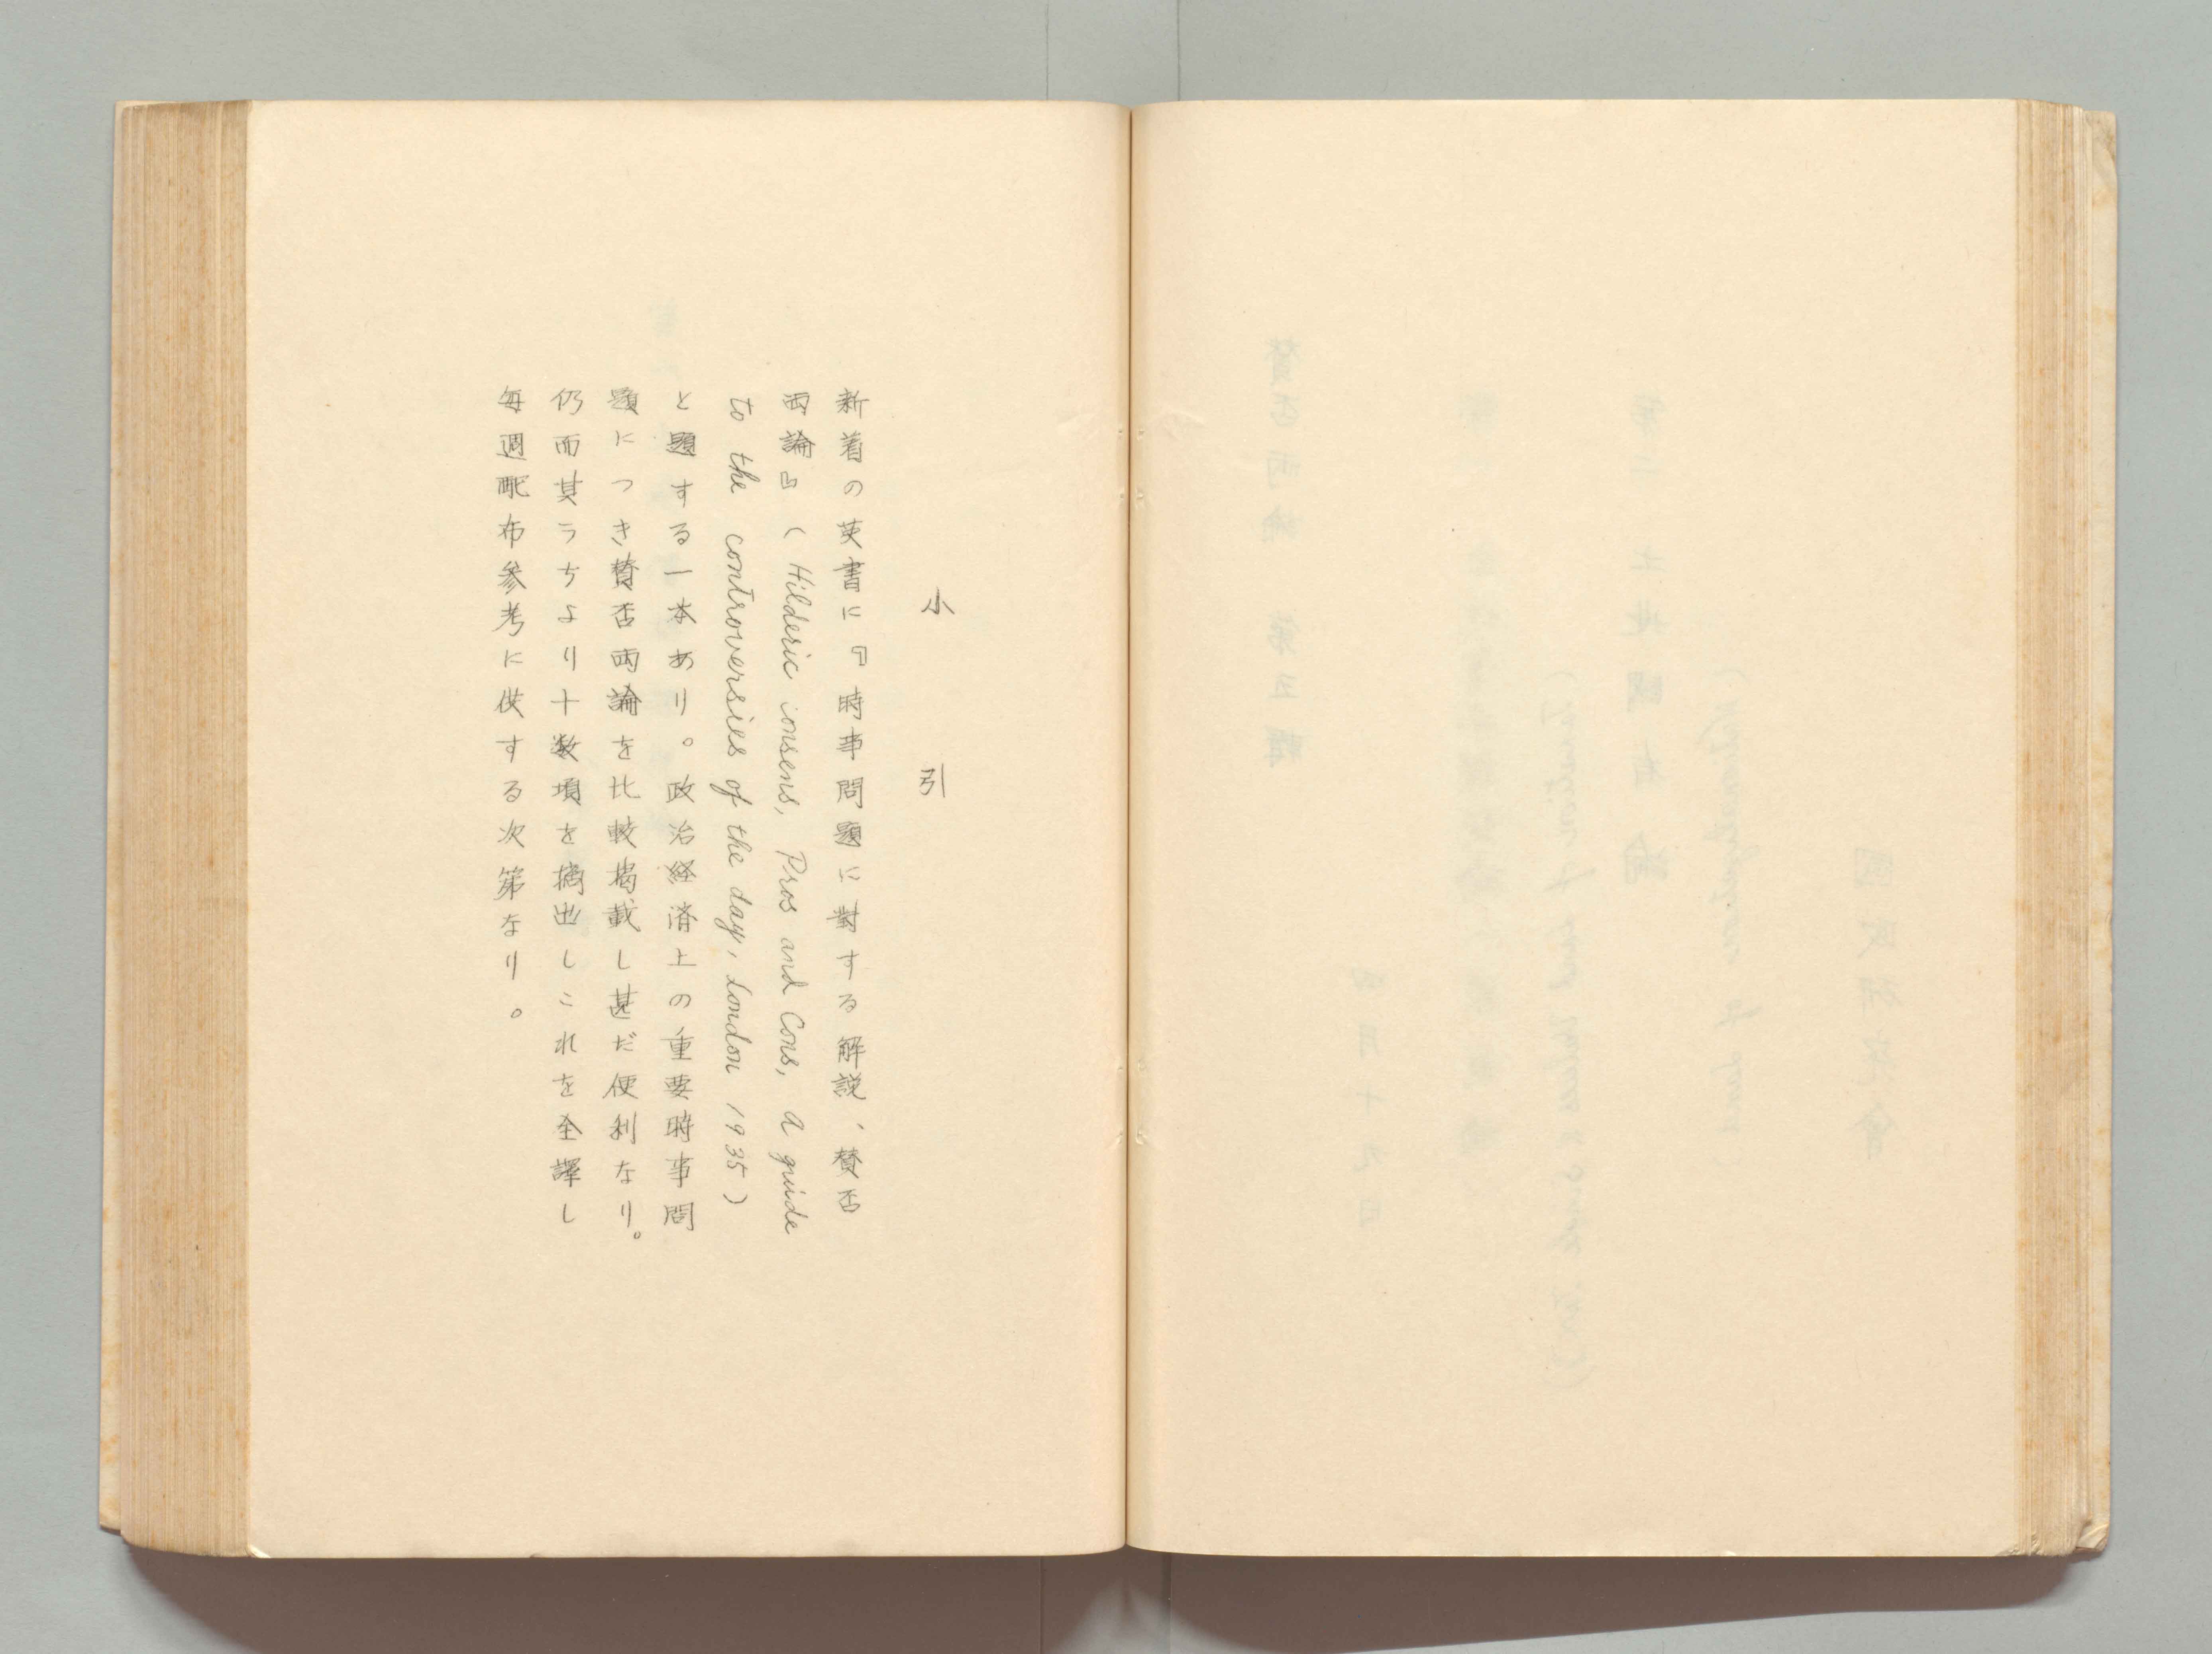 小引
新着の英書に『時事問題に對する解説、賛否
両論』（Hilderic Consens, Pros and Cons, A guide
to the controversies of the day, London 1935）
と題する一本あり。政治経済上の重要時事問
題につき賛否両論を比較掲載し甚だ便利なり。
仍而其うちより十数項を摘出しこれを全譯し
毎週配布参考に供する次第なり。